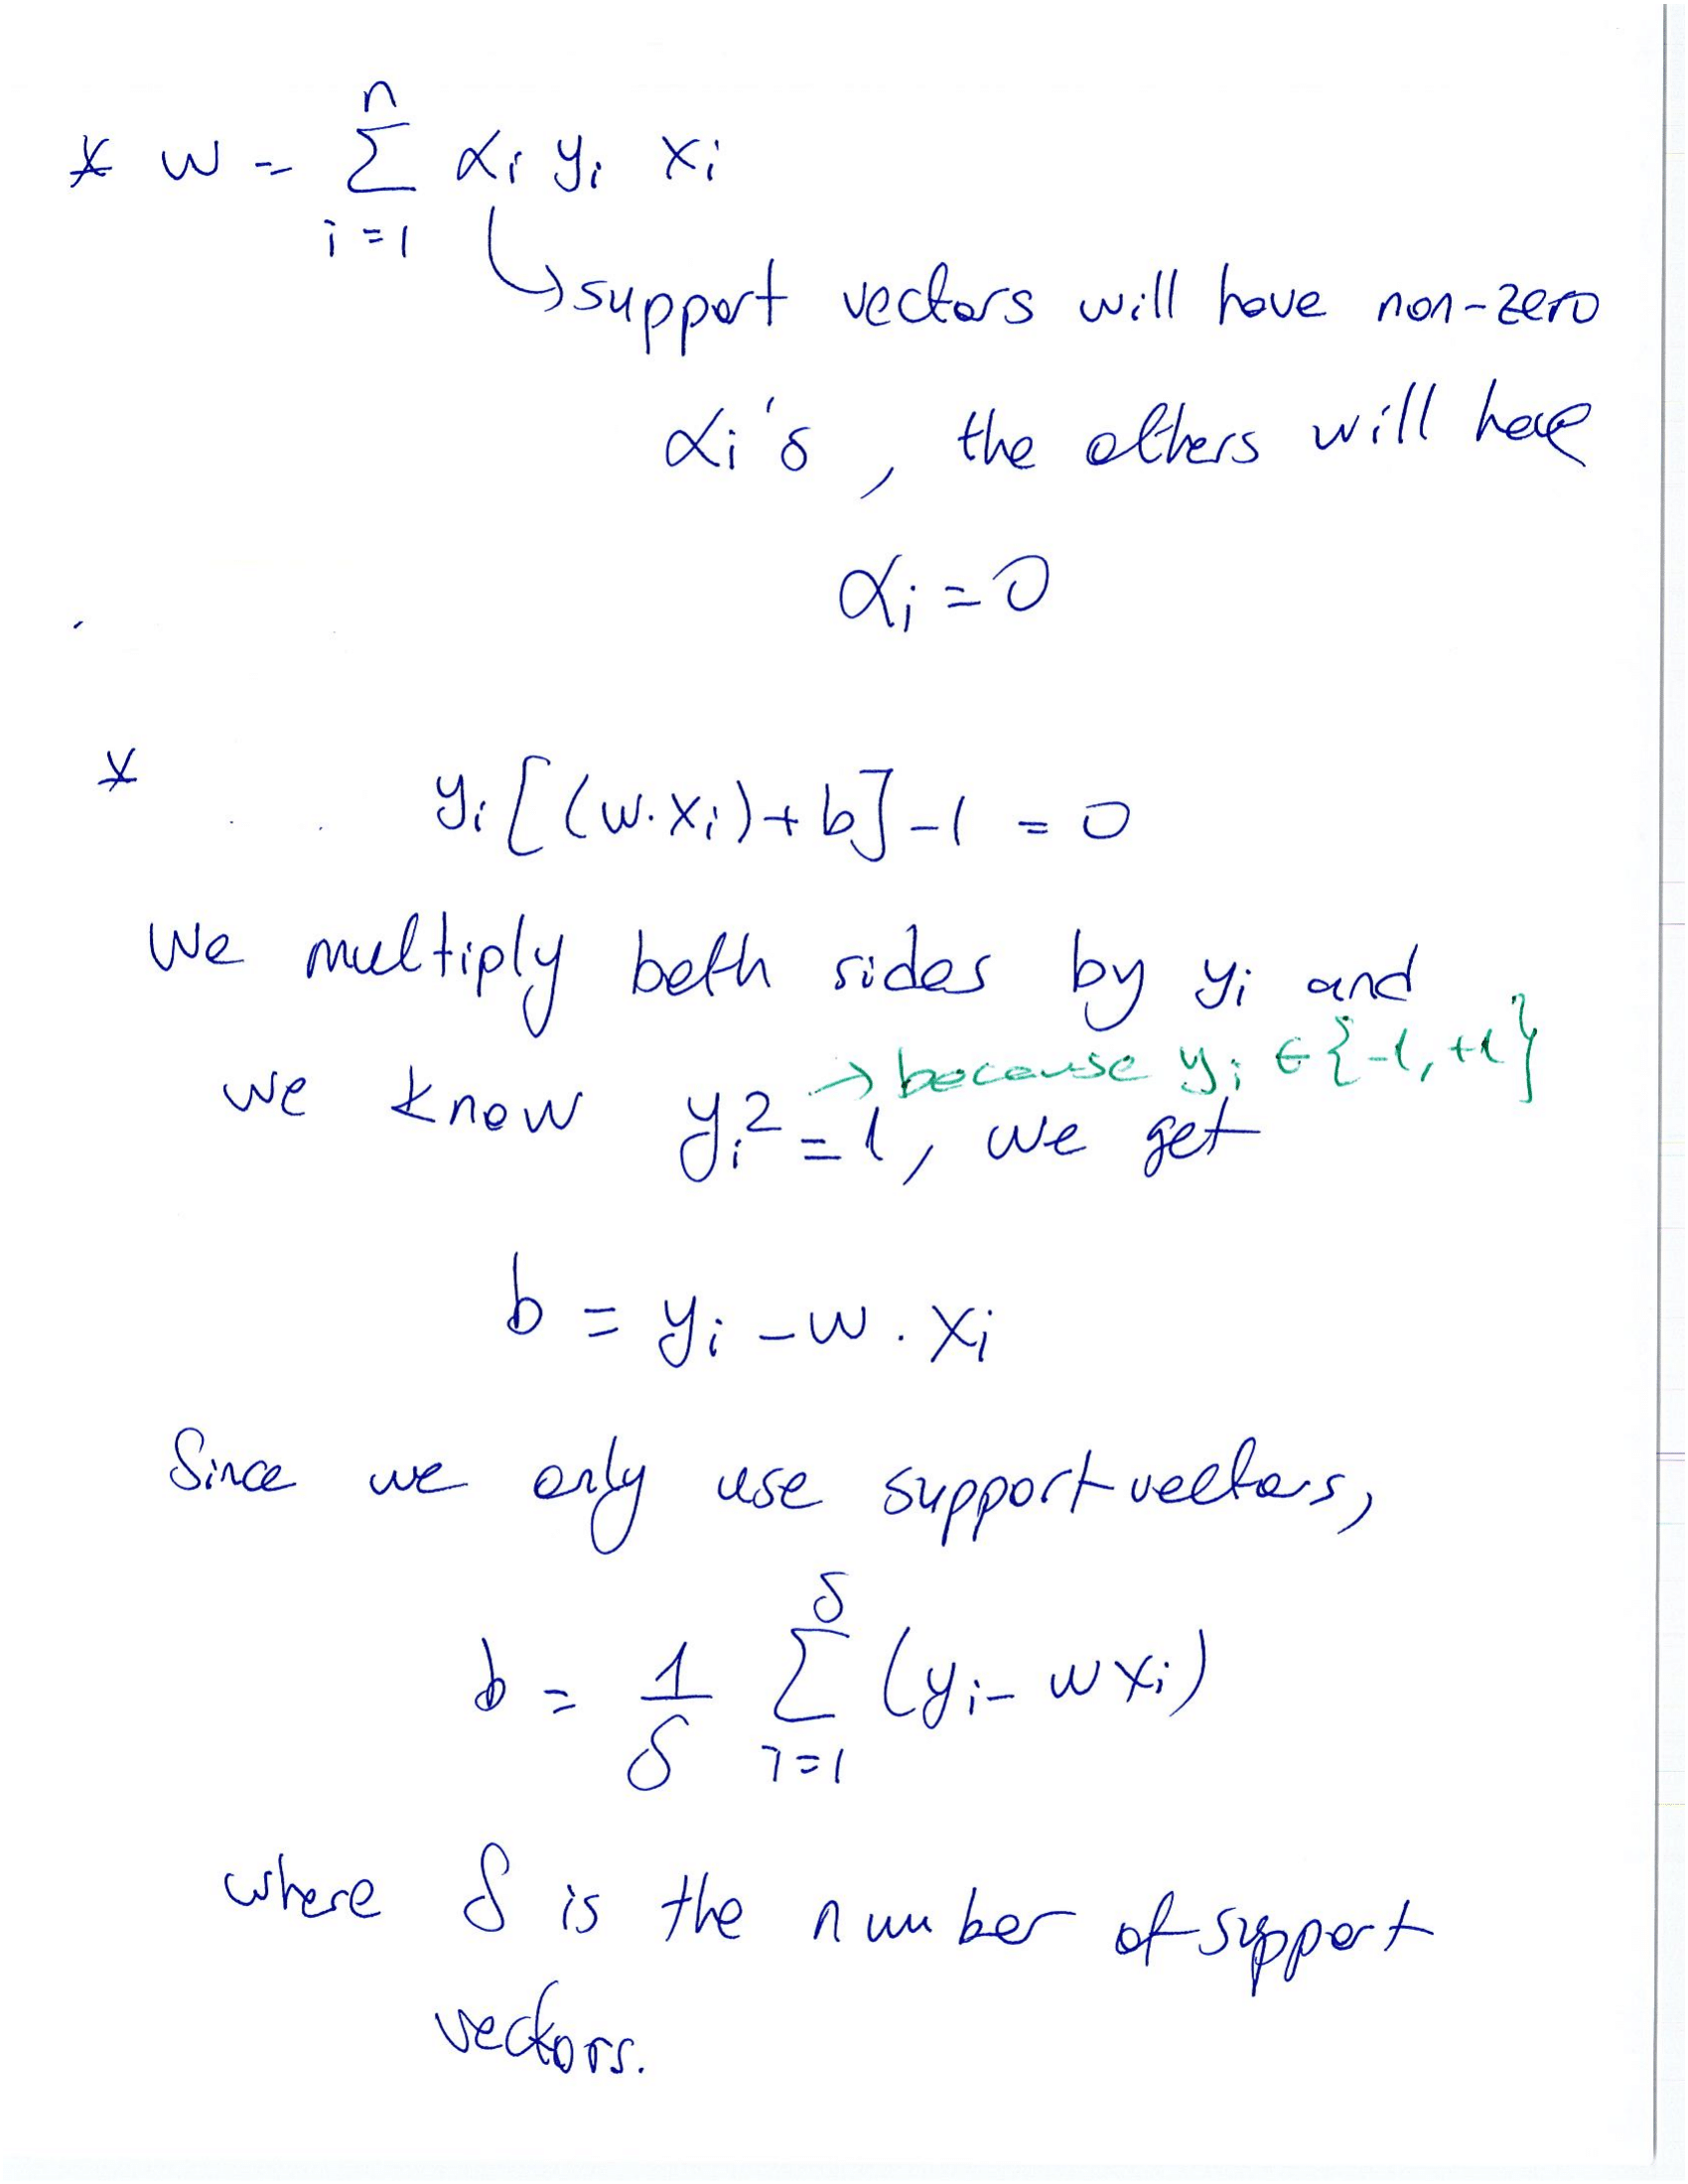 * w = n∑i=1 αi yi xi
↳ support vectors will have non-zero
αi's, the others will have
αi = 0
* yi[(w·xi)+b]-1 = 0
We multiply both sides by yi and
→ because yi ∈ {-1, +1}
we know yi² = 1, we get
b = yi - w · xi
Since we only use support vectors,
b = 1/S S∑i=1 (yi - wxi)
where S is the number of support
vectors.